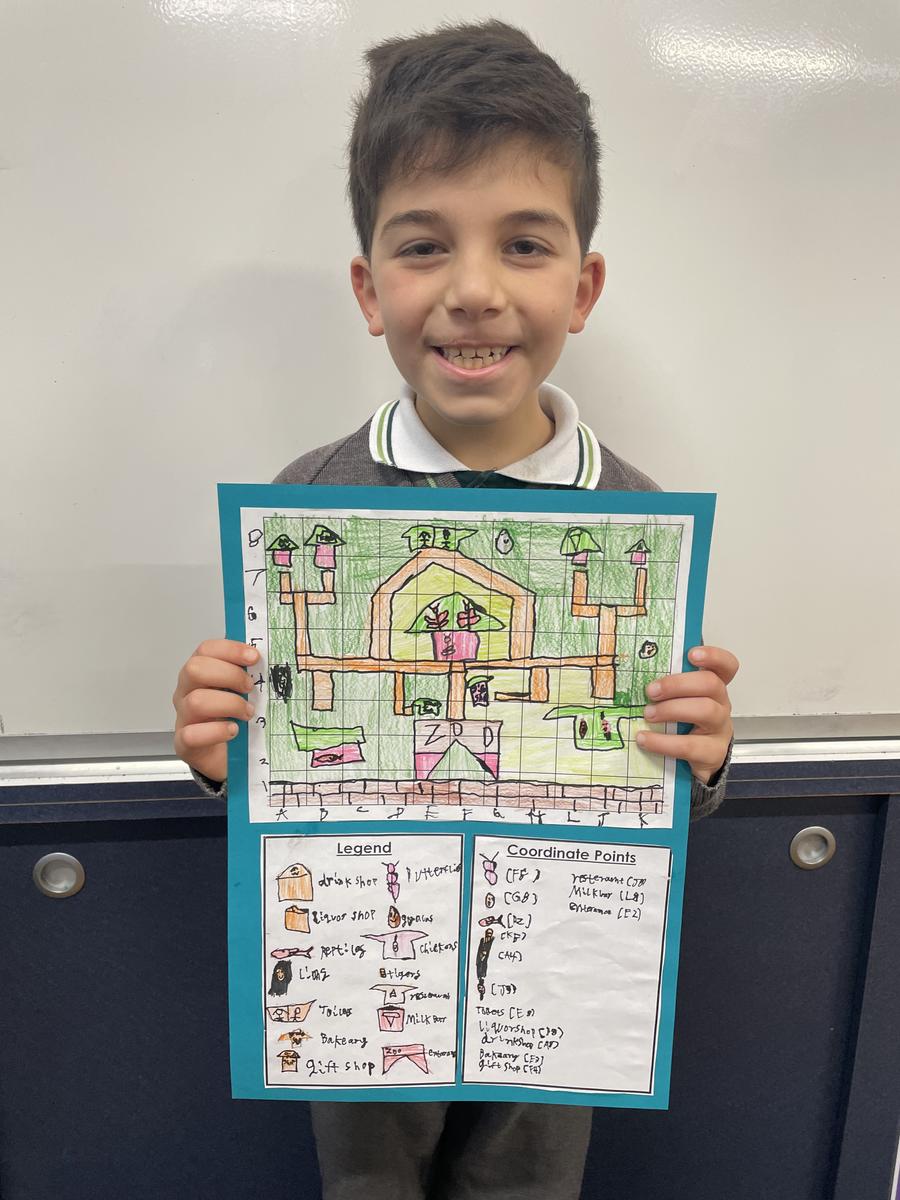 8
7
6
5
4
3
ZOO
2
1
A B C D E F G H L J K
Legend
drink shop
liquor shop
Reptiles
Lions
Toilets
Bakeary
gift shop
Chickens
tigers
resterant
Milk bar
Zoo entrance
Coordinate Points
(F5)
(G8)
(B2)
(K5)
(A4)
(J3)
Toilets (E8)
Liquorshop (B8)
drinkshop (A8)
Bakeary (E3)
gift shop (F4)
resterant (J8)
Milk bar (L8)
Entrance (E2)